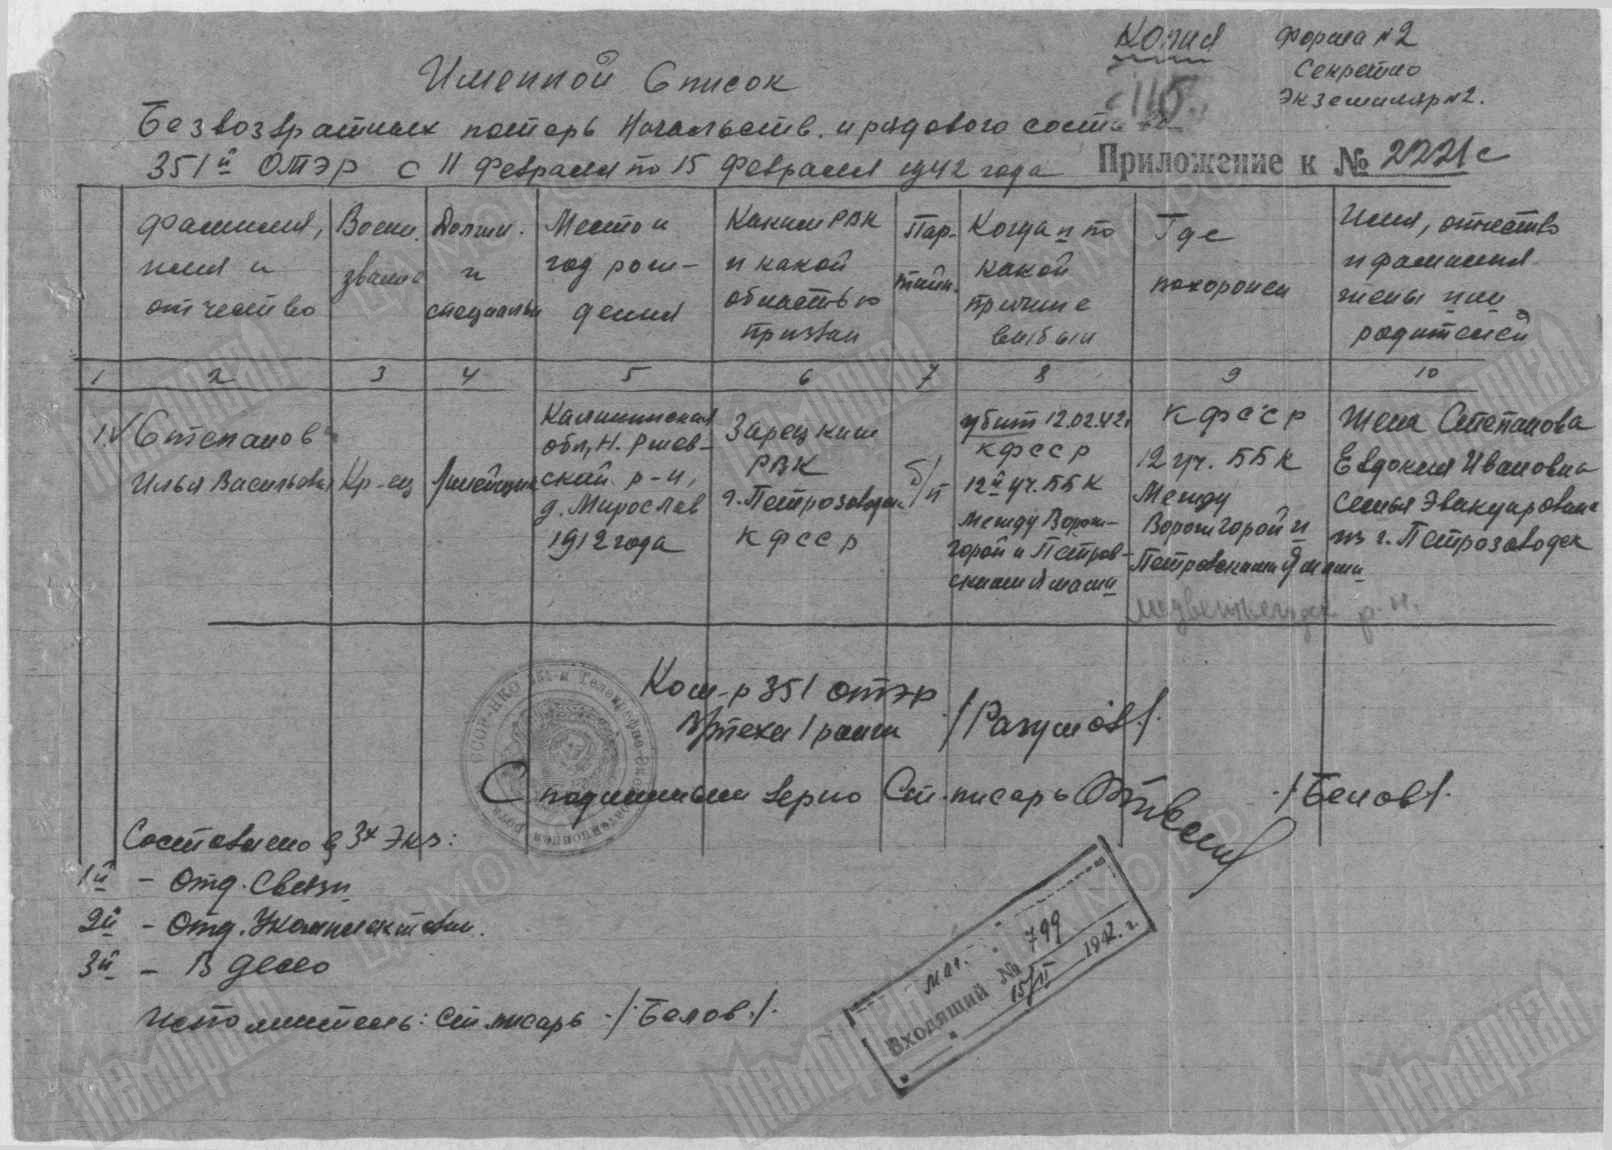 Копия
Форма №2
Секретно
Экземпляр №2.
с 115.
Именной Список
Безвозвратных потерь Начальств. и рядового состава
351й ОТЭР с 11 Февраля по 15 Февраля 1942 года
Приложение к № 2221с
Фамилия, имя и отчество
Воен. звание
Должн. и специальн
Место и год рождения
Каким РВК и какой областью призван
Партийн.
Когда и по какой причине выбыл
Где похоронен
Имя, отчество и фамилия жены или родителей
1 2 3 4 5 6 7 8 9 10
1. Степанов
Илья Васильевич
Кр-ец
Линейщик
Калининская
обл, Н. Ржев-
ский р-н,
д. Мирослав
1912 года
Зарецким
РВК
г. Петрозаводск
КФССР
б/п
убит 12.02.42г
КФССР
12й уч. ББК
Между Ворож-
горой и Петров-
скими Ямами
КФССР
12 уч. ББК
Между
Ворожгорой и
Петровскими Ямами
Медвежьегорск р-н.
Жена Степанова
Евдокия Ивановна
семья эвакуирована
из г. Петрозаводск
Ком-р 351 ОТЭР
В/техн 1 ранга /Разумов/.
С подлинным верно Ст. писарь /Белов/.
СССР-НКО 351-я Телеграфно-Эксплоатационная рота
Составлено в 3х Экз:
1й - Отд. Связи
2й - Отд. Укомплектован.
3й - В дело
Исполнитель: ст писарь /Белов./.
Входящий № 799
15/II 1942 г.
Мемориал
Мемориал
Мемориал
Мемориал
Мемориал
Мемориал